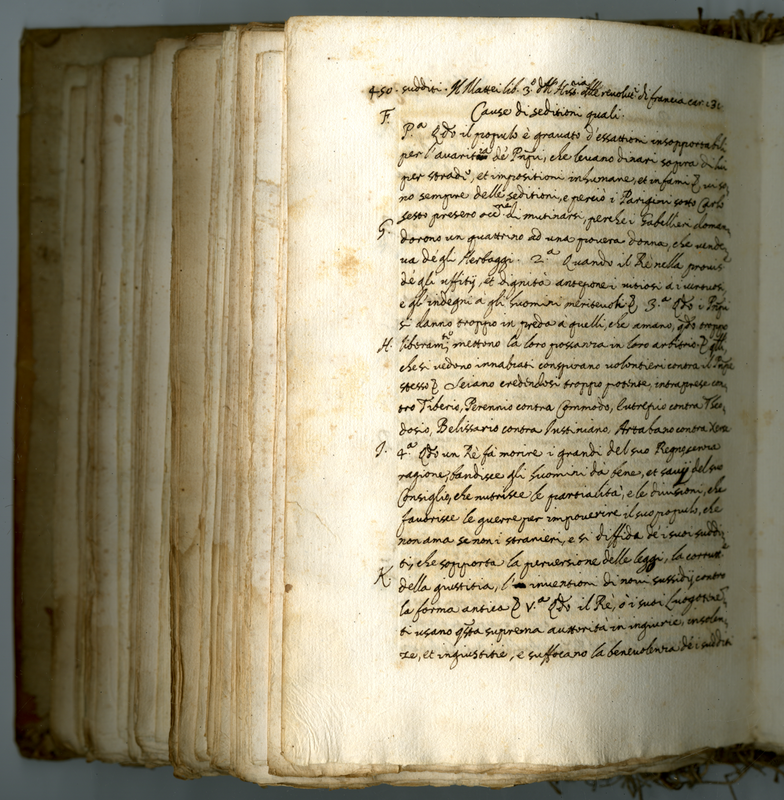 450. sudditi. Il Mattei lib. 3.º dll' Hist.ria delle revoluz.ni di francia car. 131
Cause di seditioni quali.
F. P.a Qdo il populo è gravato d'essattioni insopportabili
per l'avaritia de' Prñpi, che levano dinari sopra di lui
per stradi, et impositioni inhumane, et infami
no sempre delle seditioni, e perciò i Parigini sotto Carlo
sesto presero occ.ne di mutinarsi, perche i Gabellieri doman-
G. dorono un quattrino ad una povera donna, che vende-
va de gli Herbaggi. 2.a Quando il Rè nella provis.e
de gli uffitij, et dignità antepone i vitiosi a i virtuosi
e gl' indegni a gli huomini meritevoli 3.a Qdo i Prñpi
si danno troppo in preda à quelli, che amano, qdo troppo
H. liberam.te mettono la loro possanza in loro arbitrio
che si vedono innalzati conspirano volontieri contro il
stesso Seiano credendosi troppo potente, intraprese con-
tro Tiberio, Perennio contra Commodo, Eutropio contra Theo-
dosio, Belissario contra Iustiniano, Artabano contra Xerse
J. 4.a Qdo un Rè fà morire i grandi del suo Regno senza
ragione, bandisce gli huomini da bene, et savij del suo
Consiglio, che nutrisce le partialità, e le divisioni, che
favorisce le guerre per impoverire il suo populo, che
non ama se non i stranieri, e si diffida de' i suoi suddi-
ti, che sopporta la perversione delle leggi, la corrut.e
K della giustitia, l' inventioni di novi sussidij contro
la forma antica V.a Qdo il Rè, ò i suoi Luogotenẽ-
ti usano qsta suprema auttorità in ingiurie, insolen-
ze, et ingiustitie, e suffocano la benevolenza de' i sudditi